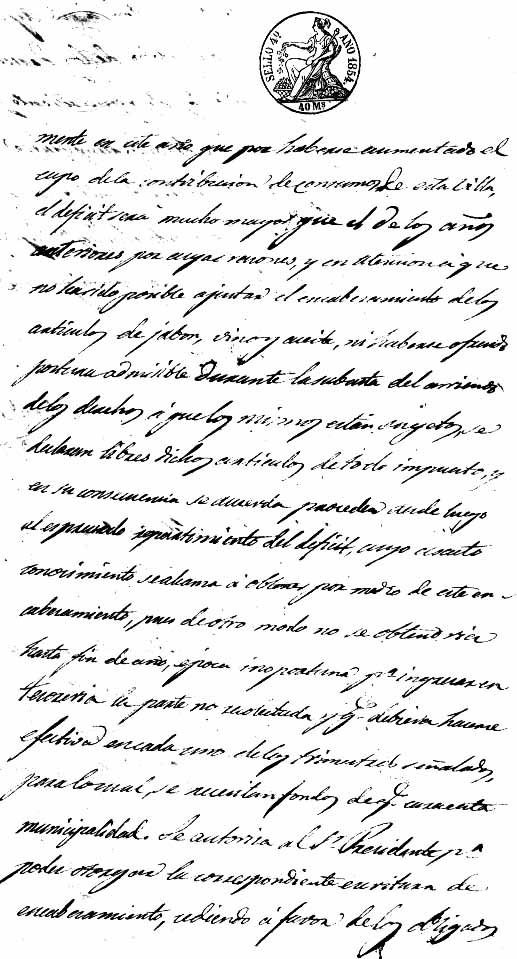 SELLO 4º AÑO 1854.
40 Ms
mente en este año que por haberse aumentado el
cupo de la contribucion de consumos de esta Villa,
el deficit será mucho mayor que el de los años
anteriores por cuyas razones, y en atencion á que
no ha sido posible ajustar el encabezamiento de los
articulos de jabon, vino y aceite, ni haberse ofrecido
postura admisible durante la subasta del arriendo
de los derechos á que los mismos están sujetos, se
declaran libres dichos articulos de todo impuesto, y
en su consecuencia se acuerda proceder desde luego
al espresado repartimiento del deficit, cuyo exacto
conocimiento se alcanza á obtener por medio de este en-
cabezamiento, pues de otro modo no se obtendria
hasta fin de año, época inoportuna pª ingresar en
tesoreria la parte no recolectada y q. debiera hacerse
efectiva en cada uno de los trimestres señalados,
para lo cual, se necesitan fondos de q. carece esta
municipalidad. Se autoriza al Sr Presidente pª
poder otorgar la correspondiente escritura de
encabezamiento, cediendo á favor de los obligados